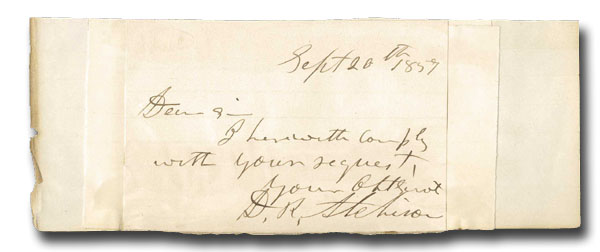 Sept 20th 1857
Dear sir
I herewith comply
with your request,
Your Obt Servt
D. R. Atchison